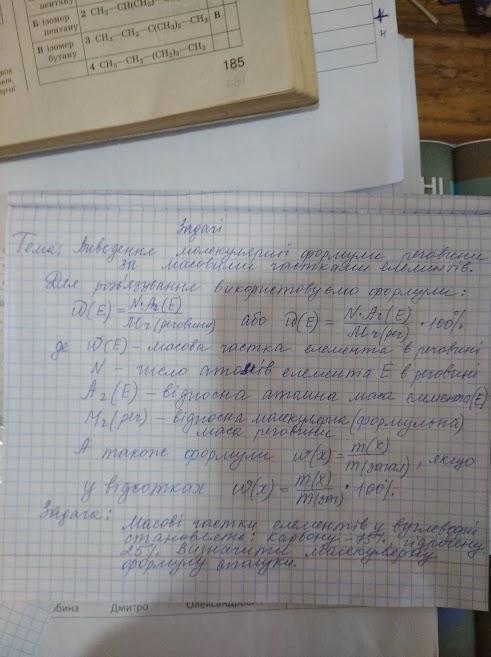 пентану
Б ізомер
пентану
В ізомер
бутану
2 CH₃—CH(CH₃)
3 CH₃—CH₂—C(CH₃)₂—CH₃
4 CH₃—CH₂—(CH₂)₃—CH₃
В
185
Н
НІ
Задачі
Тема: Виведення молекулярної формули речовини
за масовими частками елементів.
Для розв'язування використовуємо формули:
W(E) = N·Ar(E) / Mr(речовини) або W(E) = N·Ar(E) / Mr(реч) · 100%
де W(E) – масова частка елемента в речовині
N – число атомів елемента E в речовині
Ar(E) – відносна атомна маса елемента(E)
Mr(реч) – відносна молекулярна (формульна)
маса речовини
А також формули w(x) = m(x) / m(загал), якщо
у відсотках W(x) = m(x) / m(заг) · 100%.
Задача:
Масові частки елементів у вуглеводні
становлять: Карбону – 75%, Гідрогену
25%. Визначити молекулярну
формулу сполуки.
бина Дмитро Олександрович